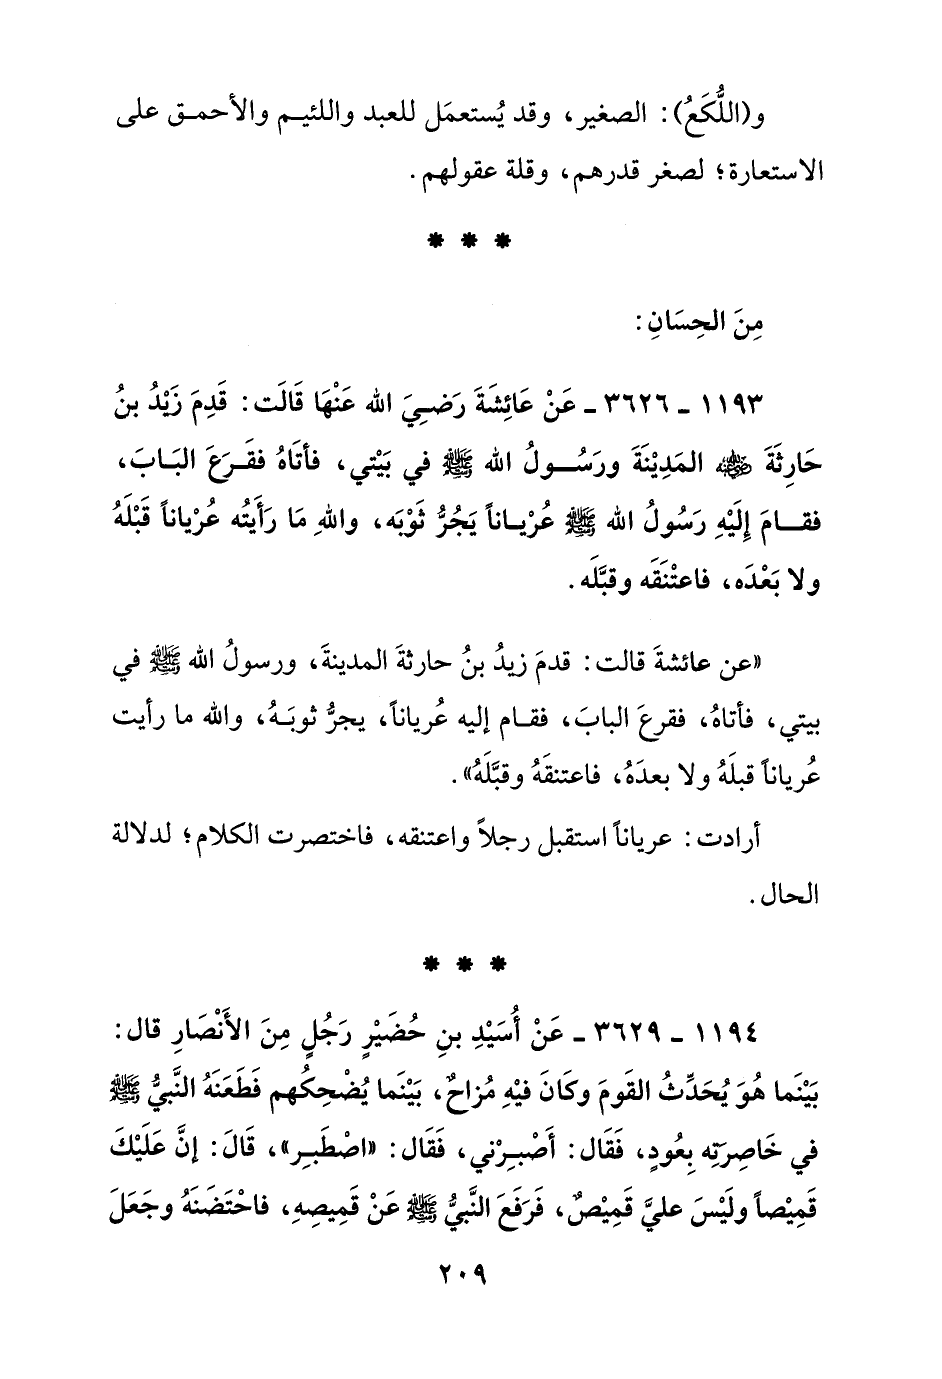 و(اللُّكَعُ): الصغير، وقد يُستعمَل للعبد واللئيم والأحمق على
الاستعارة؛ لصغر قدرهم، وقلة عقولهم.
* * *
مِنَ الحِسَانِ:
١١٩٣ - ٣٦٢٦ - عَنْ عَائِشَةَ رَضيَ الله عَنْهَا قَالَت: قَدِمَ زَيْدُ بنُ
حَارِثَةَ رضي الله عنه المَدِيْنَةَ ورَسُولُ الله ﷺ في بَيْتي، فأتَاهُ فقَرَعَ البَابَ،
فقامَ إِلَيْهِ رَسُولُ الله ﷺ عُرْياناً يَجُرُّ ثَوْبَه، واللهِ مَا رَأَيتُه عُرْياناً قَبْلَهُ
ولا بَعْدَه، فاعتْنَقَه وقبَّلَه.
«عن عائشةَ قالت: قدمَ زيدُ بنُ حارثةَ المدينةَ، ورسولُ الله ﷺ في
بيتي، فأتاهُ، فقرعَ البابَ، فقام إليه عُرياناً، يجرُّ ثوبَهُ، والله ما رأيت
عُرياناً قبلَهُ ولا بعدَهُ، فاعتنقَهُ وقبَّلَهُ».
أرادت: عرياناً استقبل رجلاً واعتنقه، فاختصرت الكلام؛ لدلالة
الحال.
* * *
١١٩٤ - ٣٦٢٩ - عَنْ أُسَيْدِ بنِ حُضَيْرٍ رَجُلٍ مِنَ الأَنْصَارِ قال:
بَيْنَما هُوَ يُحَدِّثُ القَومَ وكَانَ فيْهِ مُزاحٌ، بَيْنَما يُضْحِكُهم فَطَعَنَهُ النَّبيُّ ﷺ
في خَاصِرَتِه بِعُودٍ، فَقَال: أَصْبِرْني، فَقَال: «اصْطَبرِ»، قَالَ: إنَّ عَلَيْكَ
قَمِيْصاً ولَيْسَ عليَّ قَمِيْصٌ، فَرَفَعَ النَّبيُّ ﷺ عَنْ قَمِيصِهِ، فاحْتَضَنَهُ وجَعَلَ
٢٠٩